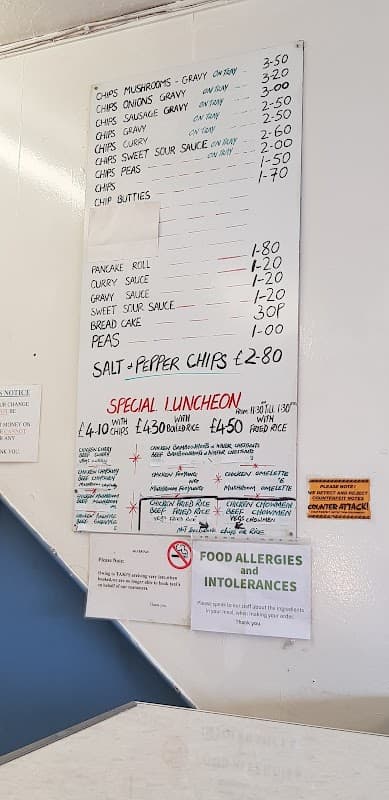 CHIPS MUSHROOMS - GRAVY ON TRAY 3-50
CHIPS ONIONS GRAVY ON TRAY 3-20
CHIPS SAUSAGE GRAVY ON TRAY 3-00
CHIPS GRAVY ON TRAY 2-50
CHIPS CURRY ON TRAY 2-50
CHIPS SWEET SOUR SAUCE ON TRAY 2-60
CHIPS PEAS ON TRAY 2-00
CHIPS 1-50
CHIP BUTTIES 1-70
PANCAKE ROLL 1-80
CURRY SAUCE 1-20
GRAVY SAUCE 1-20
SWEET SOUR SAUCE 1-20
BREAD CAKE 30P
PEAS 1-00
SALT & PEPPER CHIPS £2-80
SPECIAL LUNCHEON FROM 11:30 TILL 1:30PM
£4-10 WITH CHIPS £4-30 WITH BOILED RICE £4-50 WITH FRIED RICE
CHICKEN CURRY
BEEF CURRY
CHICKEN BAMBOOSHOOTS & WATER CHESTNUTS
BEEF BAMBOOSHOOTS & WATER CHESTNUTS
CHICKEN CHOPSUEY
BEEF CHOPSUEY
CHICKEN FUYUNG
MUSHROOM FUYUNG
CHICKEN OMELETTE
MUSHROOM OMELETTE
CHICKEN MUSHROOM
BEEF MUSHROOM
CHICKEN FRIED RICE
BEEF FRIED RICE
CHICKEN CHOWMEIN
BEEF CHOWMEIN
VEGS CHOWMEIN
NOT INCLUDING CHIPS OR RICE
NOTICE
THANK YOU.
PLEASE NOTE!
WE DETECT AND REJECT
COUNTERFEIT NOTES
COUNTER ATTACK!
Please Note:
Owing to TAXI'S arriving very late when
booked, we are no longer able to book taxi's
on behalf of our customers.
Thank you.
FOOD ALLERGIES
and
INTOLERANCES
Please speak to our staff about the ingredients
in your meal, when making your order.
Thank you.